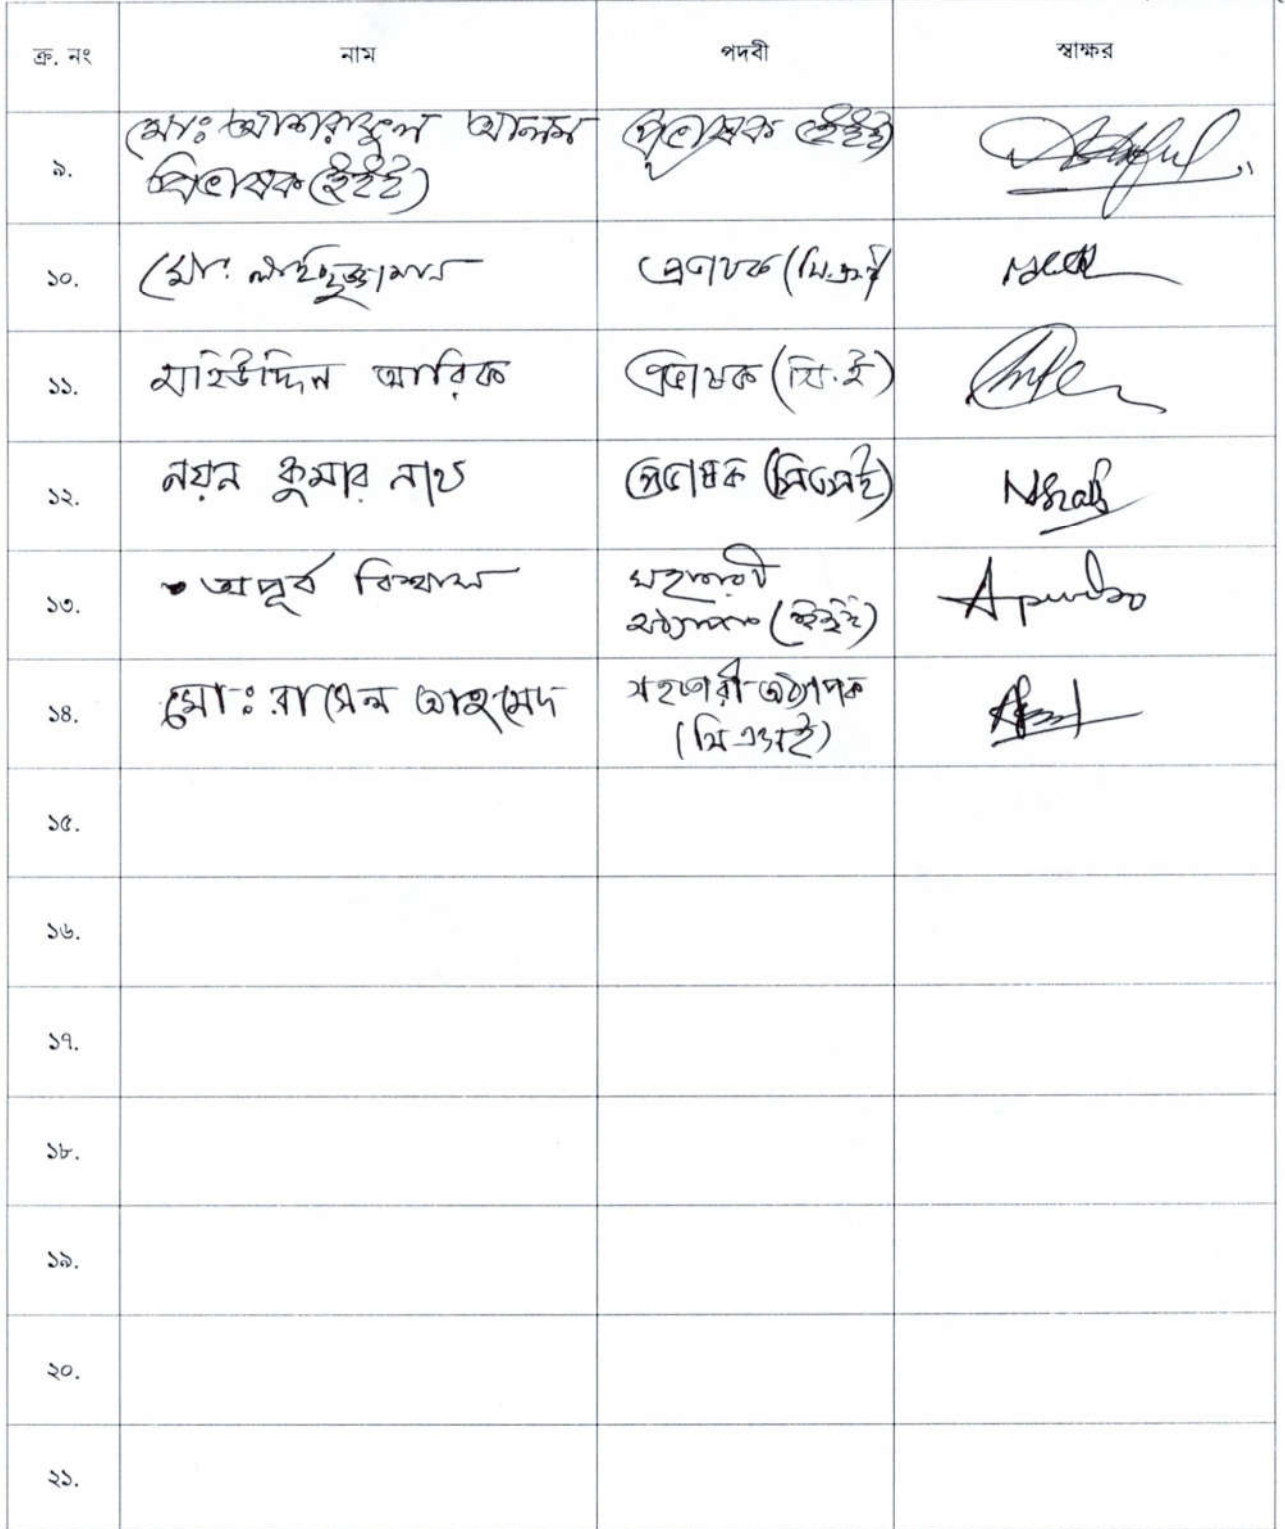 ক্র. নং নাম পদবী স্বাক্ষর
৯. মোঃ আশরাফুল আলম প্রভাষক (ইইই)
প্রভাষক (ইইই)
১০. মো: প্রভাষক
১১. মহিউদ্দিন আরিফ প্রভাষক (সি.ই)
১২. নয়ন কুমার নাথ প্রভাষক (সিএসই)
১৩. অপূর্ব বিশ্বাস সহকারী Apurbo
অধ্যাপক (ইইই)
১৪. মোঃ রাসেল আহমেদ সহকারী অধ্যাপক
(সিএসই)
১৫.
১৬.
১৭.
১৮.
১৯.
২০.
২১.